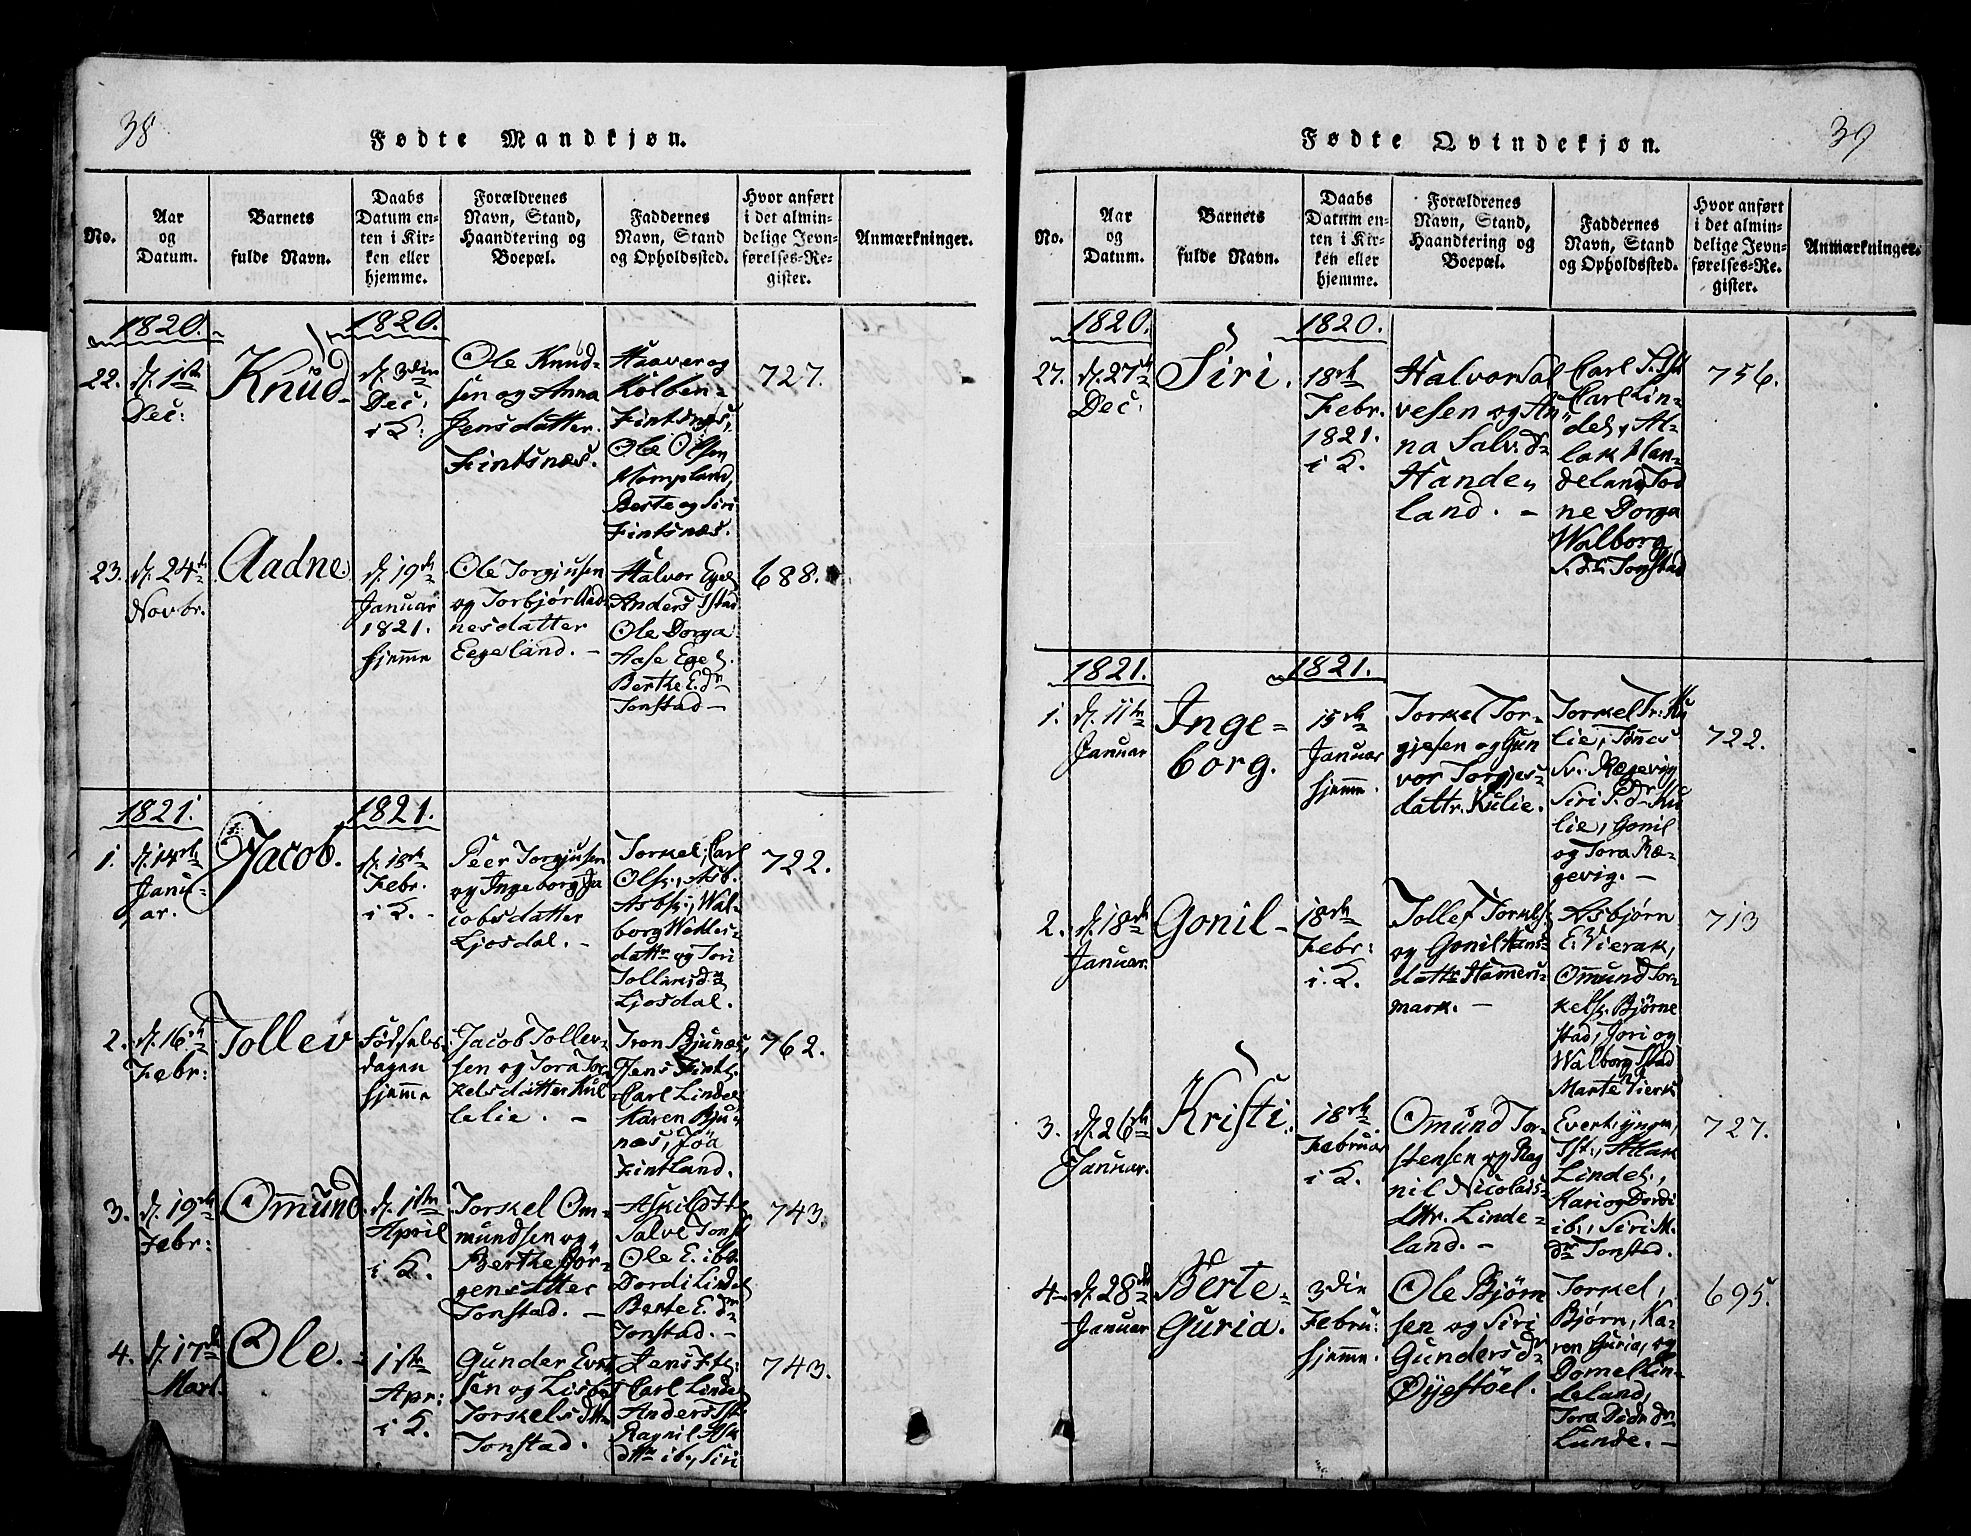 38
Fødte Mandkjøn.
No.
Aar
og
Datum.
Barnets
fulde Navn.
Daabs
Datum en-
ten i Kir-
ken eller
hjemme.
Forældrenes
Navn, Stand,
Haandtering og
Boepæl.
Faddernes
Navn, Stand
og Opholdssted.
Hvor anført
i det almin-
delige Jevn-
førelses-Re-
gister.
Anmærkninger.
1820.
1820.
22.
d. 1ste
Dec:
Knud
d. 3die
Dec:
i K:
Ole Knud-
sen og Anna
Jensdatter.
Fintsnæs.
Haaver og
Kolben-
Fintsnæs,
Ole Olsen
Berte og Siri
Fintsnæs.
727.
23.
d. 24de
Novbr.
Aadne
d. 19de
Januar
1821.
hjemme
Ole Torgjusen
og Torbjør Aad-
nesdatter
Eegeland. -
Halvor Egel.
Anders Tstad
Ole Dorga
Aase Egel.
Berthe E. dr
Tonstad -
688.
1821.
1821.
1.
d. 14de
Janu-
ar.
Jacob.
d. 18de
Febr.
i K. -
Peer Torgjusen
og Ingeborg Ja
cobsdatter
Ljosdal. -
Torkel, Carl
Ols:, Asb.
Asbs:, Wal-
borg
dattr og Tori
Ljosdal.
722.
2.
d. 16de
Febr:
Tollev
Fødsels-
dagen
hjemme
Jacob Tollev-
sen og Tora Tor-
kelsdatter Kul
lelie. -
Tron Bjunes,
Jens Fintl.
Carl Lindel
Karen Bju-
nes, Jøa
Fintland.
762.
3.
d. 19de
Febr:
Omund
d. 1ste
April
i K.
Torkel Om-
mundsen og
Berthe Jør-
gensdtter
Tonstad. -
Askild Ftl
Salve Tonst
Ole E. ibd.
Dordi Lindel
Berte E. dr
Tonstad. -
743.
4.
d. 17de
Mart.
Ole. -
1ste
Apr:
i K.
Gunder Evert
sen og Lisbet
Torkelsdttr
Tonstad.
Jens Ftl:
Carl Lindel
Anders Tst
Ragnil Ask
dttr ib, Siri
743.
39
Fødte Qvindekjøn.
No.
Aar
og
Datum.
Barnets
fulde Navn.
Daabs
Datum en-
ten i Kir-
ken eller
hjemme.
Forældrenes
Navn, Stand,
Haandtering og
Boepæl.
Faddernes
Navn, Stand
og Opholdssted.
Hvor anført
i det almin-
delige Jevn-
førelses-Re-
gister.
Anmærkninger.
1820.
1820.
27.
d. 27de
Dec.
Siri.
18de
Febr.
1821.
i K.
Halvor Sal
vesen og An-
na Salv. d-
Hande-
land. -
Carl S. Tst
Carl Lin-
del, At-
lak Han-
deland, Tod
ne Dorga
Walborg
S. dr Tonstad
756.
1821.
1821.
1.
d. 11te
Januar
Inge-
borg.
15de
Januar
hjemme.
Torkel Tor-
gjesen og Gun
vor Torgjes-
dattr. Kulie.
Torkel Tr: Ku
lie, Tønes
Sv: Rægevig
Siri S. dr Ku
lie, Gonil
og Tora Ræ-
gevig. -
722.
2.
d. 18de
Januar.
Gonil -
18de
Febr:
i K.
Tollef Torkels:
og Gonil Hans-
dattr Hameri-
mark. -
Asbjørn
E. Vierak,
Omund Tor-
kels. Bjørne
stad, Jori og
Walborg Tstad
Marte Vierk
713
3.
d. 26de
Januar.
Kristi.
18de
Februar
i K.
Omund Tor-
stensen og Rag
nil Nicolais-
dttr. Linde-
land. -
Evert, yngre,
Tst:, Atlak
Lindel.,
Kari og Dordi
ib:, Siri M.
dr Tonstad.
727.
4.
d. 28de
Januar
Berte-
Guria.
3die
Febru:
hjemme.
Ole Bjørn
sen og Siri
Gundersdr
Øyestöel.
Torkel,
Bjørn, Ka-
ren Guria, og
Domel Lin-
deland,
Tora Didr. dr
Lunde. -
695.